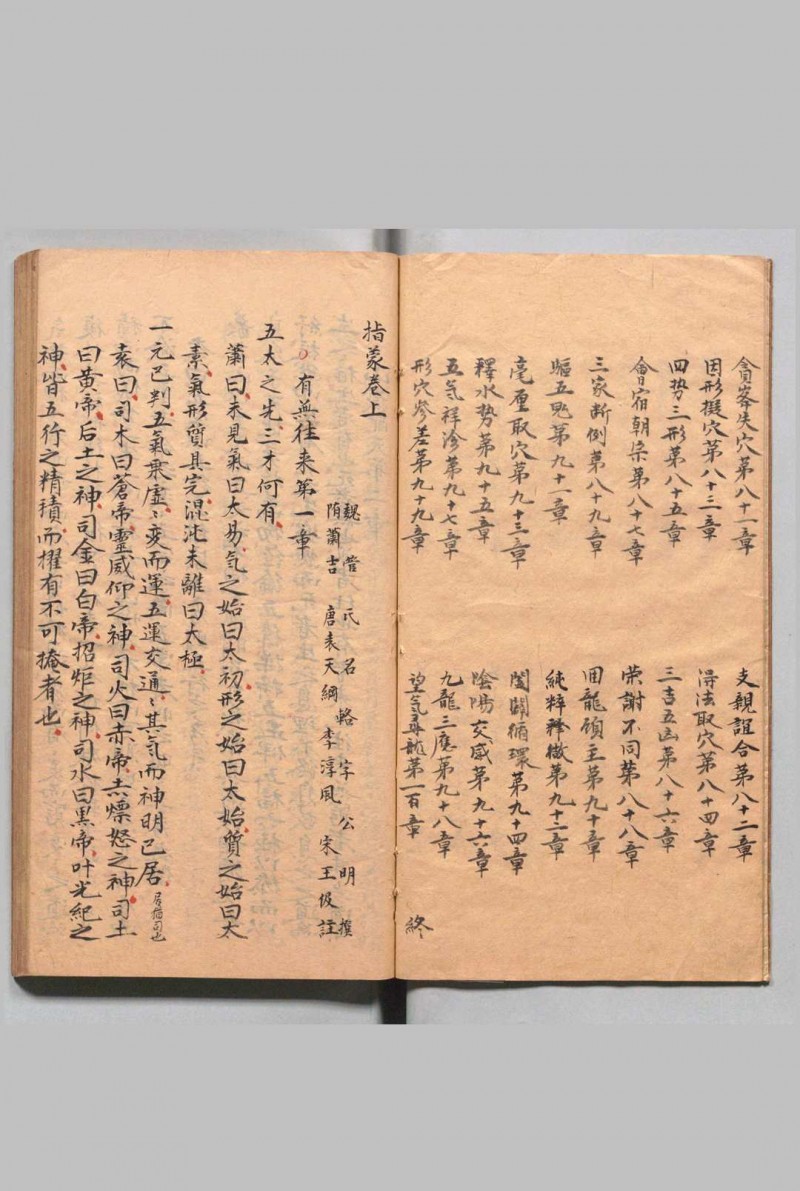 貪峯失穴第八十一章　支親誼合第八十二章
因形擬穴第八十三章　淂法取穴第八十四章
四势三形第八十五章　三吉五凶第八十六章
會宿朝宗第八十七章　荣謝不同第八十八章
三家断例第八十九章　回龍顾主第九十章
五鬼第九十一章　純粹釋微第九十二章
毫厘取穴第九十三章　闔闢循環第九十四章
釋水势第九十五章　陰陽交感第九十六章
五气祥沴第九十七章　九龍三應第九十八章
形穴參差第九十九章　望气尋龍第一百章　終
指蒙卷上
魏管氏名輅字公明撰
隋蕭吉　唐袁天綱　李淳風　宋王伋註
有無往来第一章
五太之先三才何有
蕭曰未見氣曰太易气之始曰太初形之始曰太始質之始曰太
素氣形質具完混沌未離曰太極
一元已判五氣乗虛〻变而運五運交通〻其気而神明已居居猶司也
袁曰司木曰蒼帝靈威仰之神司火曰赤帝赤熛怒之神司土
曰黄帝后土之神司金曰白帝招炬之神司水曰黒帝叶光紀之
神皆五行之精積而擢有不可掩者也